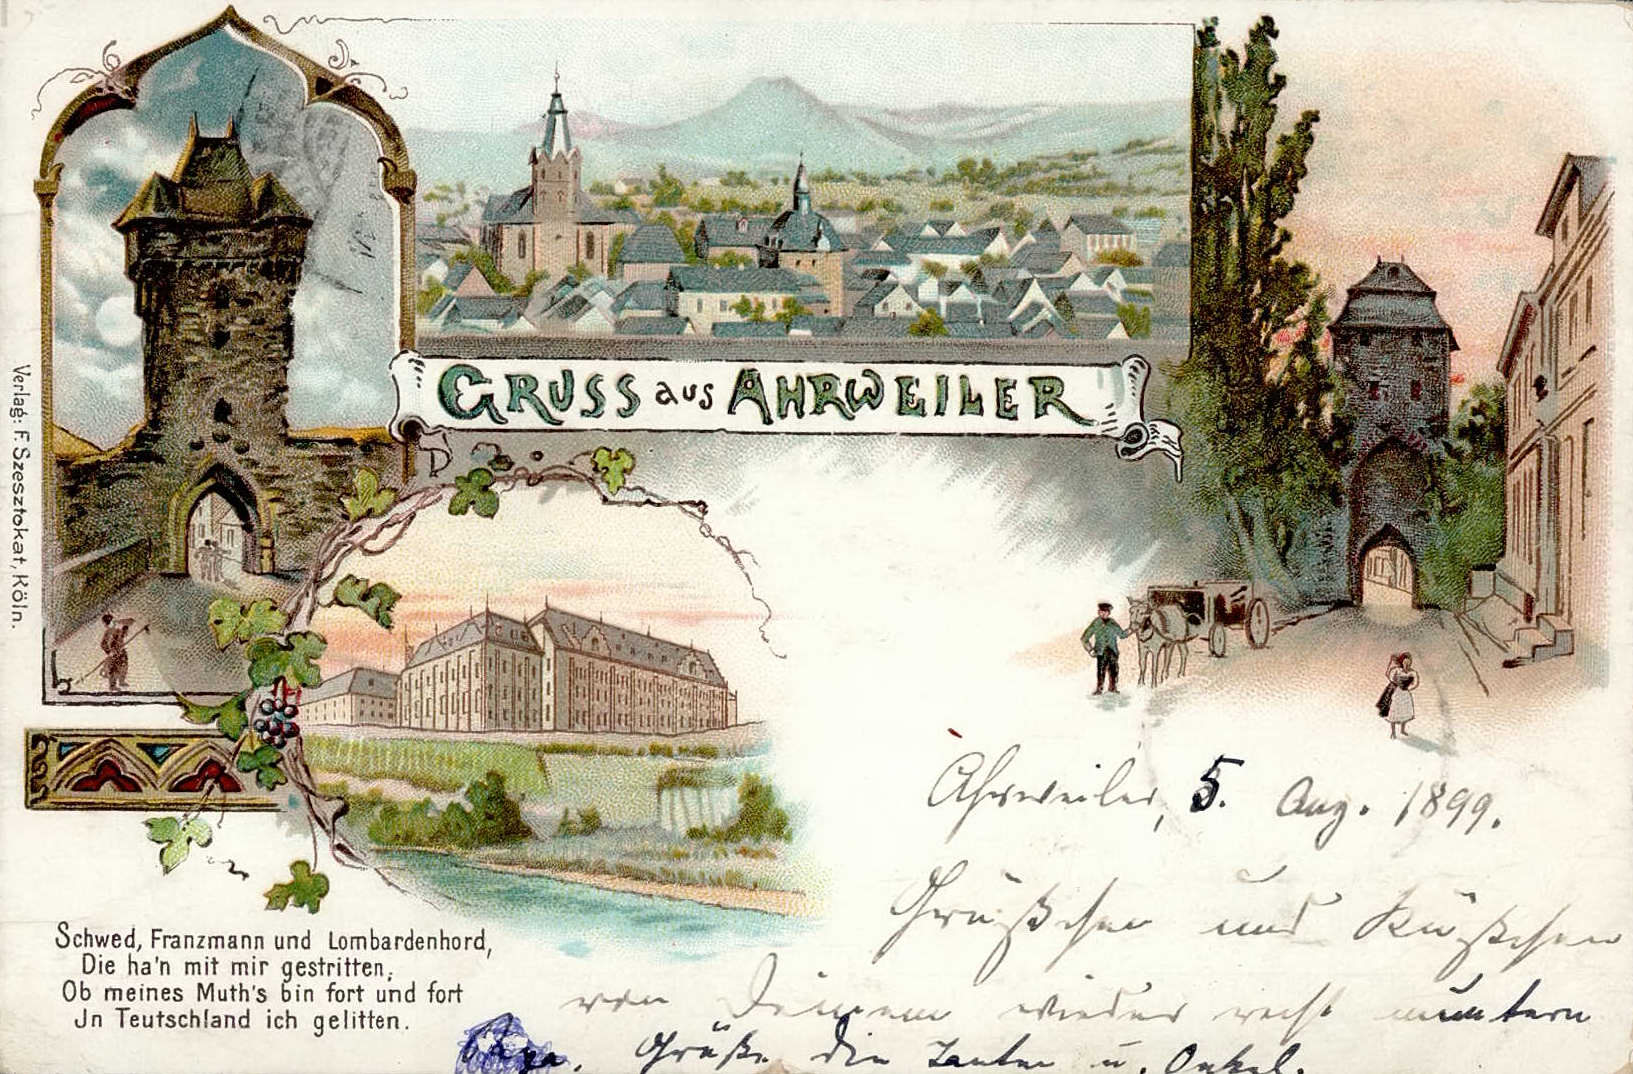 GRUSS aus AHRWEILER
Verlag: F. Szesztokat, Köln.
Schwed, Franzmann und Lombardenhord,
Die ha'n mit mir gestritten;
Ob meines Muth's bin fort und fort
Jn Teutschland ich gelitten.
Ahrweiler, 5. Aug. 1899.
Grüßchen und Küßchen
von Deinem wieder recht muntern
Grüße die Tanten u. Onkel.